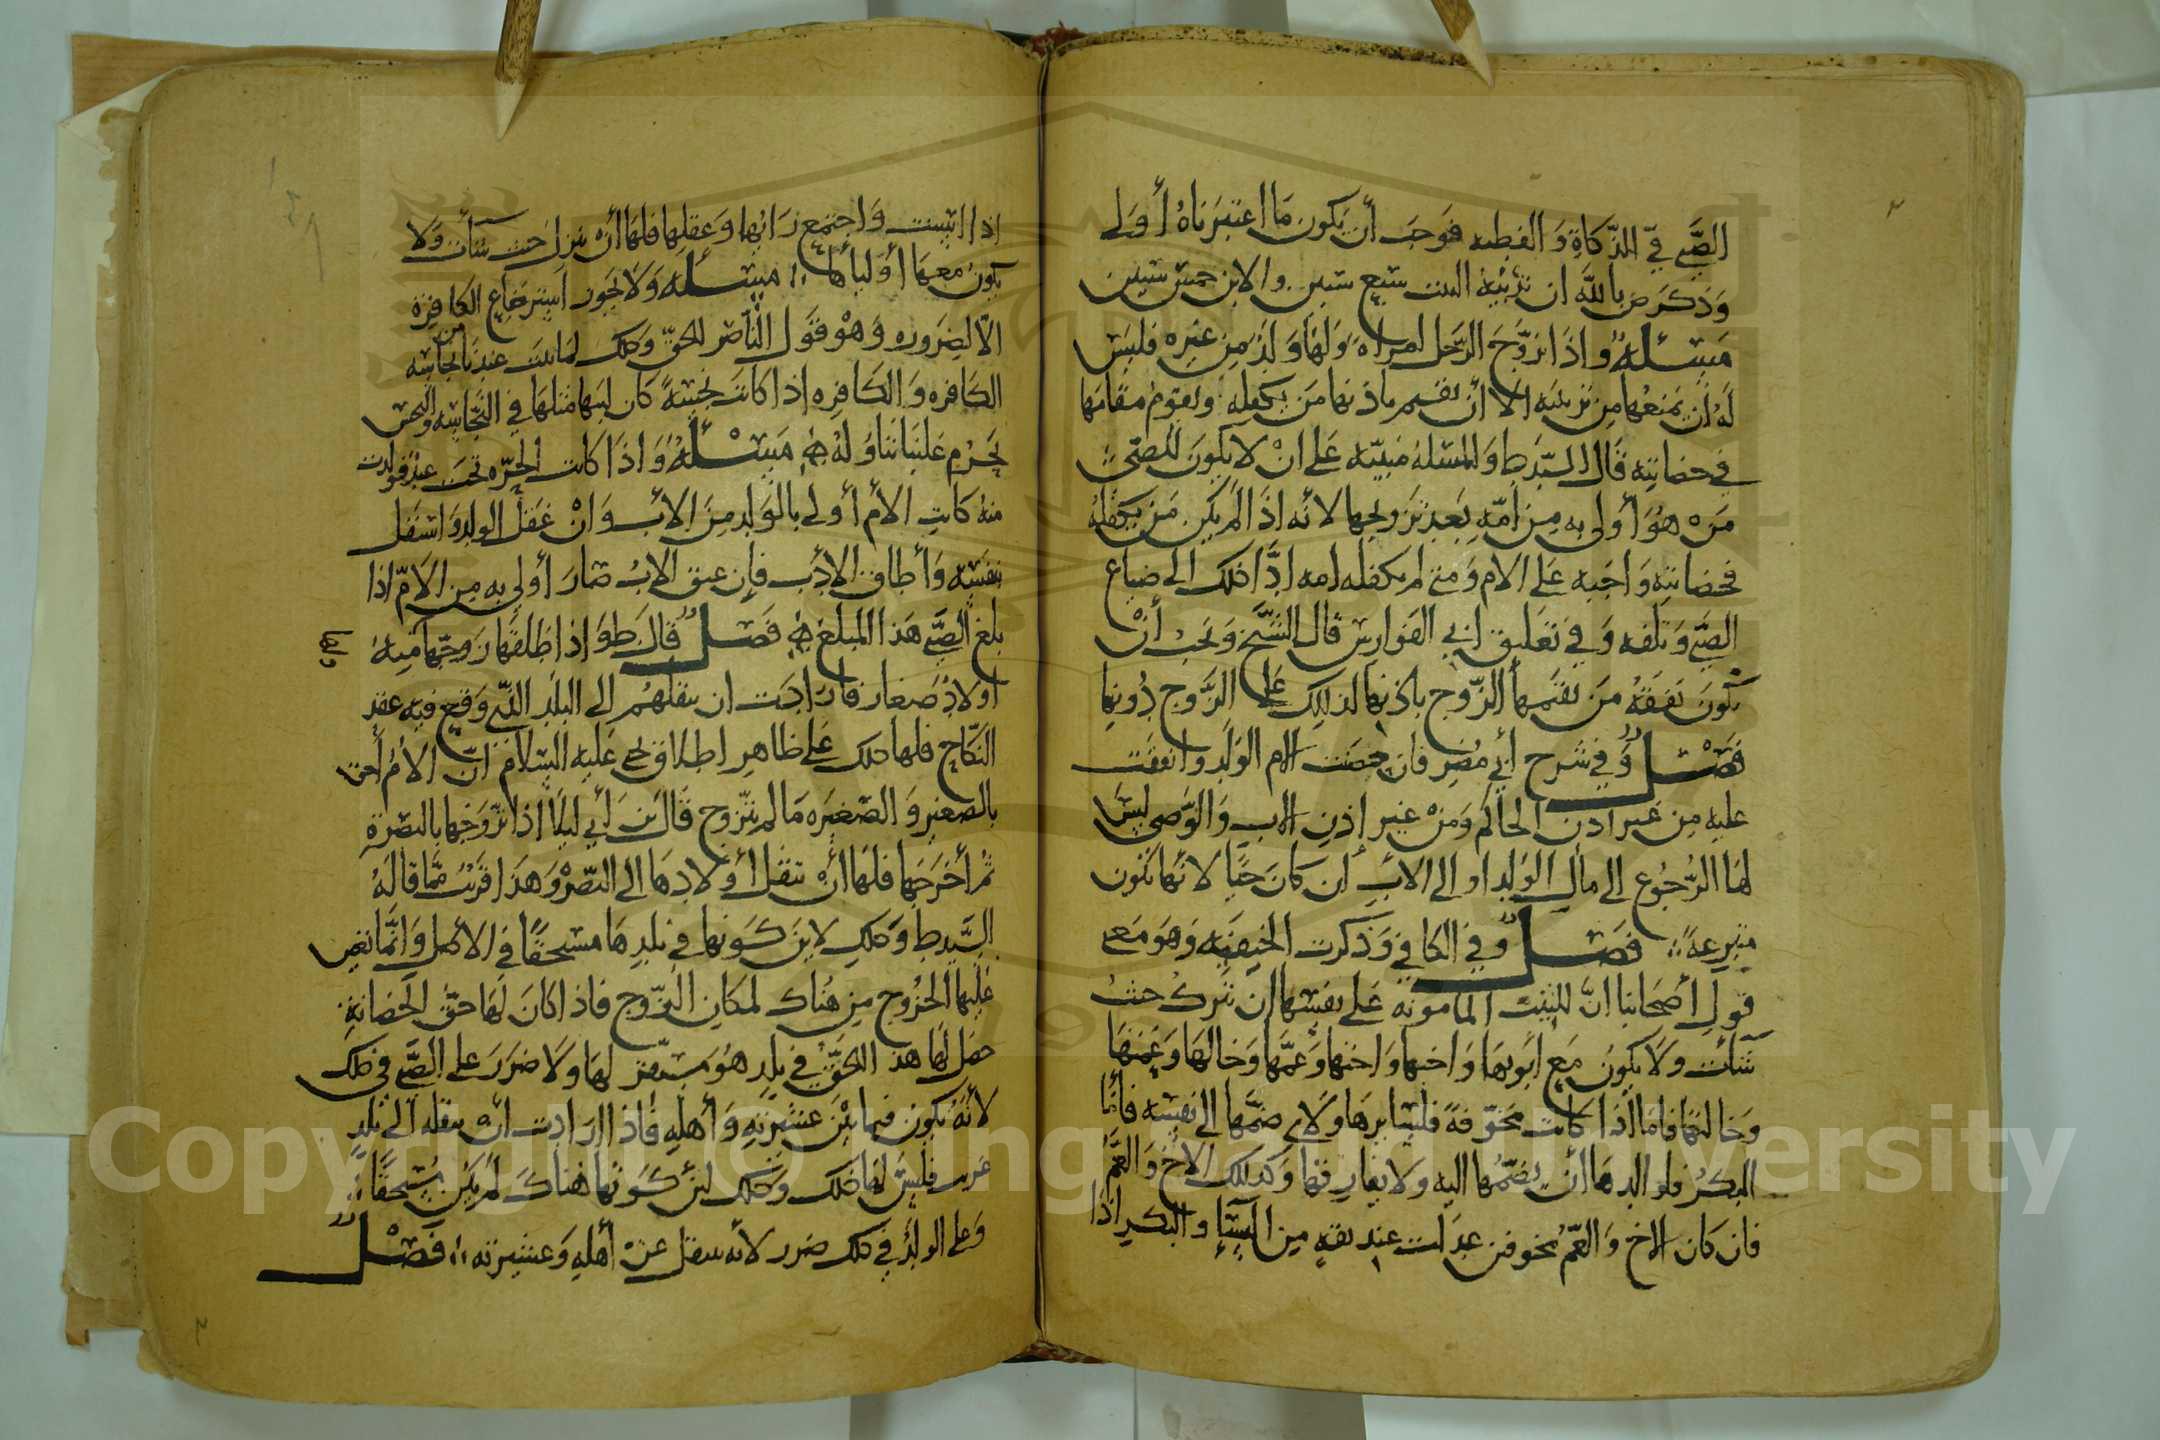 الصَّبي في الذكاة والفطنه فوجب أن يكون ما اعتبرناه أولى
وذكر ض بالله ان تربيه البنت سبع سنين والابن خمس سنين
مسئلة واذا تزوّج الرّجل امراة ولها ولد من غيره فليس
له أن يمنعها من تربيته الا أن تقيم باذنها من يكفله ويقوم مقامها
في حضانته قال السيد ط والمسئله مبنيّه على انْ لا يكون للصبي
من هو أولى به من أمّه بعد تزويجها لأنه اذا لم يكن من يكفله
فحضانته واجبه على الام ومتى لم تكفله امه ادّا ذلك الى ضياع
الصبي وتلفه وفي تعليق ابي الفوارس قال الشيخ ويجب أنْ
يكون نفقة من يقيمها الزوج باذنها لذلك على الزوج دونها
فصل وفي شرح أبي مضر فان حضنت الام الولد وانفقت
عليه من غير اذن الحاكم ومن غير إذن الاب والوصي ليس
لها الرجوع الى مال الولد او الى الاب إن كان حيّا لانها تكون
متبرعة فصل وفي الكافي وذكرت الحنيفيه وهو مع
قول أصحابنا انّ للثيّب المامونه على نفسها ان تترك حيث
شات ولا يكون مع ابويها واخيها واختها وعمّها وخالها وعمتها
وخالتها فاما اذا كانت مخوّفة فليسا برها ولابي ضمّها إلى نفسه فأمّا
البكر فلوالدها أن يضمّها اليه ولا يفارقها وكذلك الأخ والعمّ
فان كان الاخ والعمّ مخوفين عدلت عند ثقه من النساء والبكر اذا
اذا انيست واجتمع رايها وعقلها فلها أن تنزل حيث شأت ولا
يكون معها أولياها مسئلة ولا يجوز استرضاع الكافرة
الّا لضروره وهو قول الناصر للحق وذلك لما ثبت عندنا من نجاسه
الكافره والكافره إذا كانت نجسة كان لبنها مثلها في النجاسه والنجس
يحرم علينا تناوله مسئلة واذا كانت الحرّه تحت عبد فولدت
منه كانت الأم أولى بالولد من الأب وانْ عقل الولد واستقل
بنفسه وأطاق الأدب فإن عتق الاب صار أولى به من الأمّ اذا
بلغ الصبي هذا المبلغ فصل قال ط واذا طلقها زوجها منه
اولاد صغار فارادت ان تنقلهم الى البلد الذي وقع فيه عقد
النكاح فلها ذلك على ظاهر اطلاق يحيى عليه السلام انّ الأم أحق
بالصغير والصغيره ما لم تتزوج قال بن أبي ليلا اذا تزوّجها بالبصرة
ثم أخرجها فلها أن تنقل أولادها الى البصرة وهذا قريب مما قاله
السيد ط وذلك لان كونها في بلدها مستحقّا في الأصل وانما تعين
عليها الخروج من هناك لمكان الزوج فاذا كان لها حق الحضانة
حصل لها هذا الحق في بلد هو مستقر لها ولا ضرر على الصّبي في ذلك
لأنّه يكون فيما بين عشيرته وأهله فاذا ارادت ان تنقله الى بلد
غريب فليس لها ذلك وذلك لأن كونها هناك لم يكن مستحقّا
وعلى الولد في ذلك ضرر لأنه ينتقل عن أهله وعشيرته فصل
Copyright © King Saud University